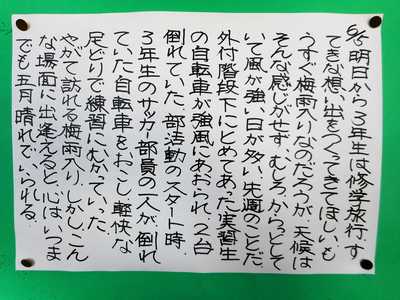 6/5 明日から3年生は修学旅行。す
てきな想い出をつくってきてほしい。も
うすぐ梅雨入りなのだろうが、天候は
そんな感じがせず、むしろ、からっとして
いて風が強い日が多い。先週のことだ。
外付階段下にとめてあった実習生
の自転車が強風にあおられ、2台
倒れていた。部活動のスタート時、
3年生のサッカー部員の一人が、倒れ
ていた自転車をおこし、軽快な
足どりで練習にむかっていった。
やがて訪れる梅雨入り。しかし、こん
な場面に出逢えると、心はいつま
でも五月晴れでいられる。